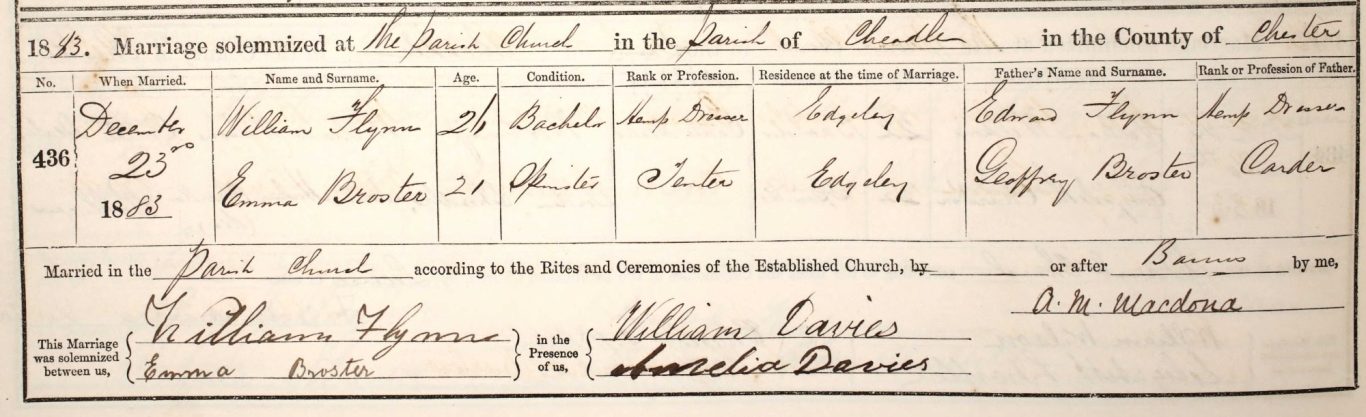 1883. Marriage solemnized at the Parish Church in the Parish of Cheadle in the County of Chester
No. When Married. Name and Surname. Age. Condition. Rank or Profession. Residence at the time of Marriage. Father's Name and Surname. Rank or Profession of Father.
436 December 23rd 1883 William Flynn 21 Bachelor Hemp Dresser Edgeley Edward Flynn Hemp Dresser
Emma Broster 21 Spinster Tenter Edgeley Geoffrey Broster Carder
Married in the Parish Church according to the Rites and Ceremonies of the Established Church, by or after Banns by me,
A. M. Macdona
This Marriage was solemnized between us, William Flynn Emma Broster in the Presence of us, William Davies Amelia Davies